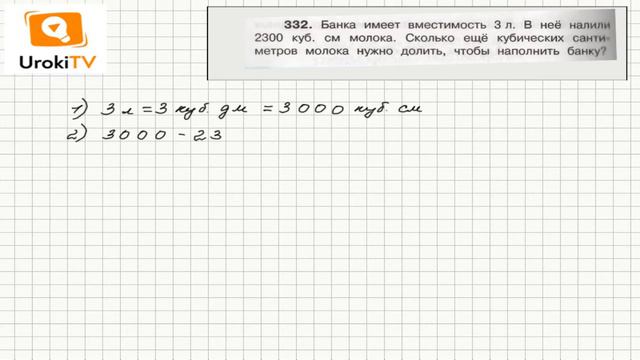 UrokiTV
332. Банка имеет вместимость 3 л. В неё налили
2300 куб. см молока. Сколько ещё кубических санти-
метров молока нужно долить, чтобы наполнить банку?
1) 3 л = 3 куб. дм = 3000 куб. см
2) 3000 - 23